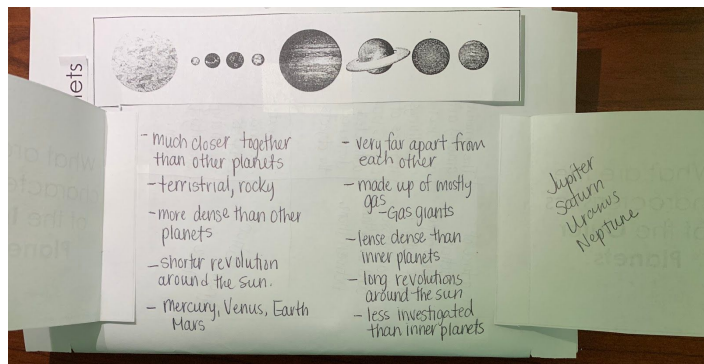 ets
- much closer together
than other planets
- terristrial, rocky
- more dense than other
planets
- shorter revolution
around the sun.
- mercury, Venus, Earth
Mars
- very far apart from
each other
- made up of mostly
gas
- Gas giants
- lense dense than
inner planets
- long revolutions
around the sun
- less investigated
than inner planets
Jupiter
Saturn
Uranus
Neptune